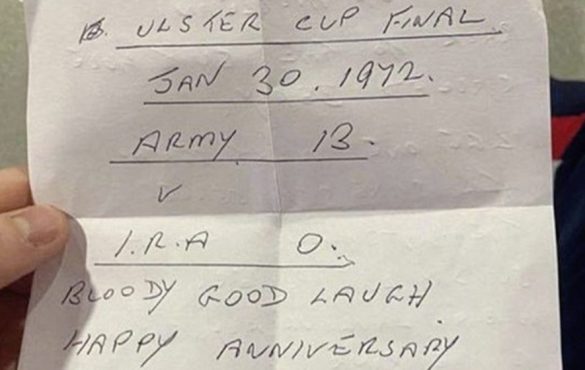 ULSTER CUP FINAL
JAN 30. 1972.
ARMY. 13.
V
I.R.A 0.
BLOODY GOOD LAUGH
HAPPY ANNIVERSARY